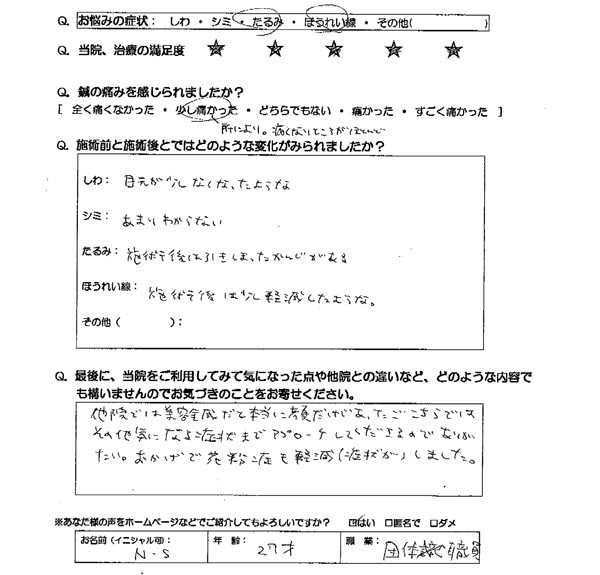 Q. お悩みの症状： しわ ・ シミ ・ たるみ ・ ほうれい線 ・ その他( )
Q. 当院、治療の満足度 ☆ ☆ ☆ ☆ ☆
Q. 鍼の痛みを感じられましたか？
[ 全く痛くなかった ・ 少し痛かった ・ どちらでもない ・ 痛かった ・ すごく痛かった ]
所により。痛くないところがほとんど
Q. 施術前と施術後とではどのような変化がみられましたか？
しわ： 目元が少しなくなったような
シミ： あまりわからない
たるみ： 施術後は引きしまったかんじがある
ほうれい線： 施術後は少し軽減したような。
その他（ ）：
Q. 最後に、当院をご利用してみて気になった点や他院との違いなど、どのような内容で
も構いませんのでお気づきのことをお寄せください。
他院では美容全般だと本当に顔だけがあったがこちらでは
その他気になる症状までアプローチしてくださるのでありが
たい。おかげで花粉症も軽減(症状が)しました。
※あなた様の声をホームページなどでご紹介してもよろしいですか？ ☑はい □匿名で □ダメ
お名前(イニシャル可)： N・S 年 齢： 27才 職 業： 団体職員